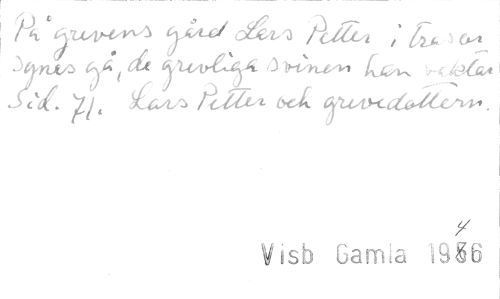 På grevens gård Lars Petter i trasor
synes gå, de grevliga svinen han vaktar
Sid. 71. Lars Petter och grevedottern.
4
Visb Gamla 1986